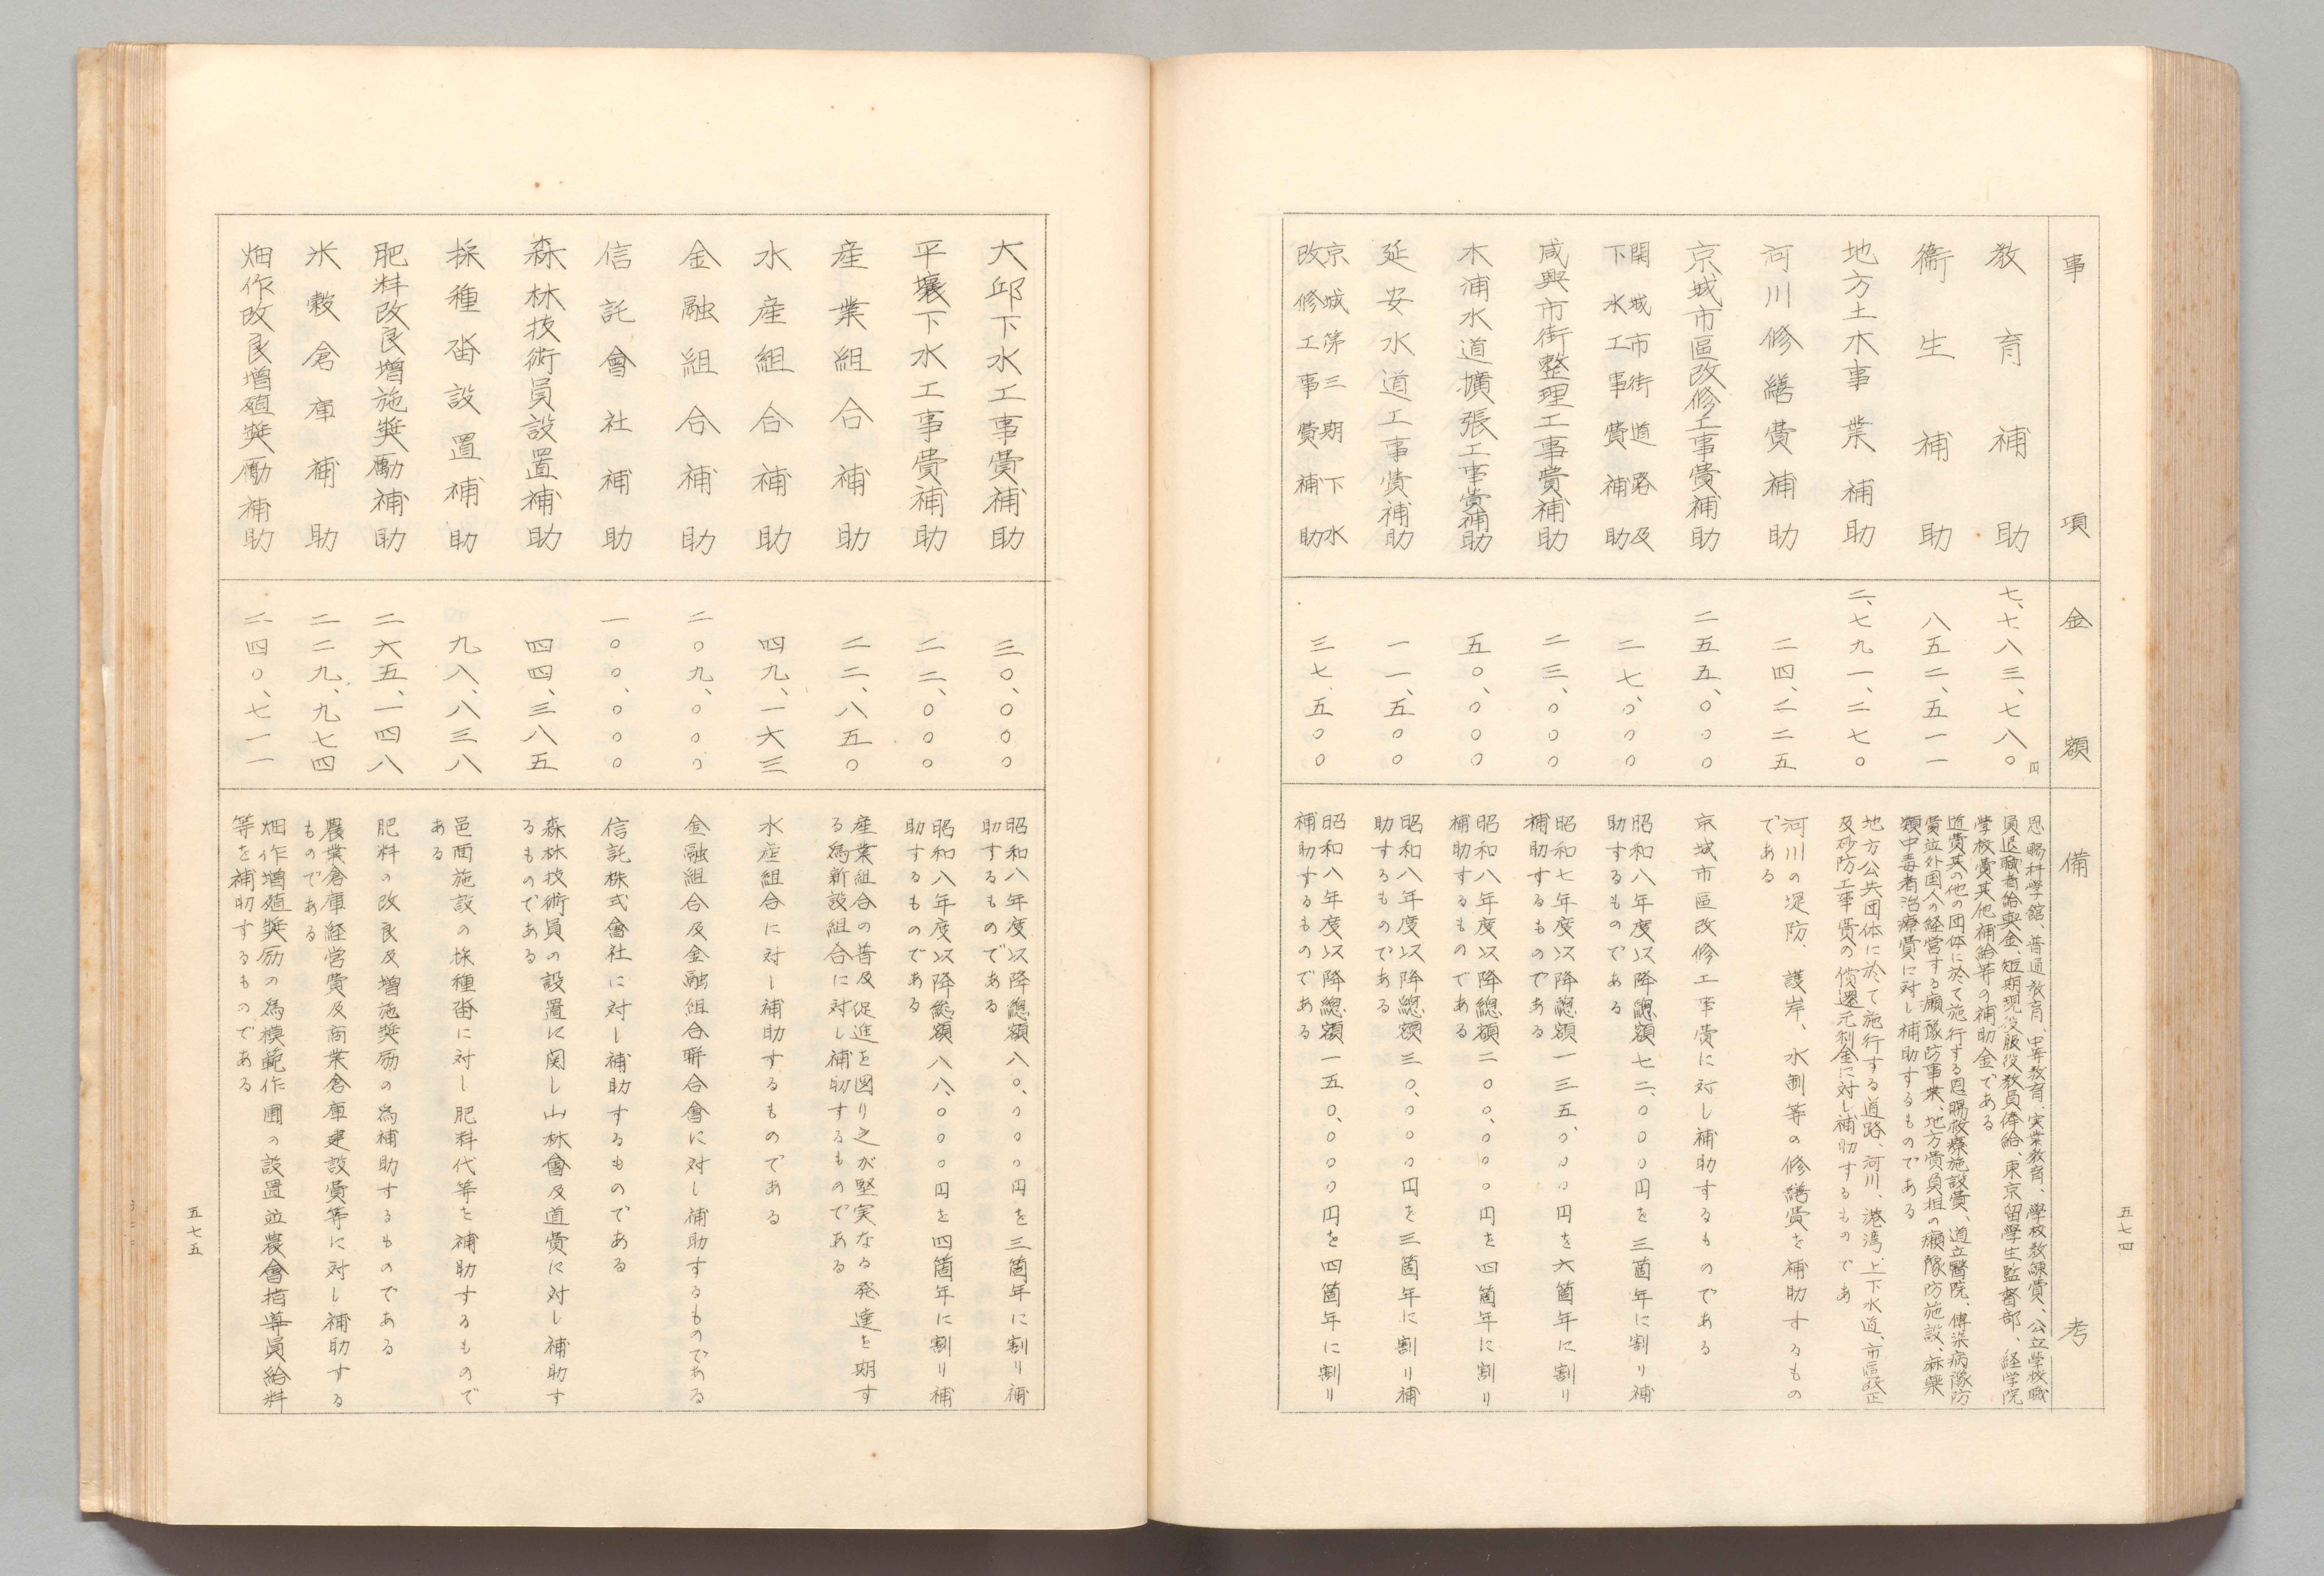 五七四
事項
金額
備考
教育補助
七、七八三、七八〇円
恩賜科学館、普通教育、中等教育、実業教育、學校教練費、公立学校職
員退職者給與金、短期現役服役教員俸給、東京留學生監督部、経学院
学校費其他補給等の補助金である
衛生補助
八五二、五一一
道費其の他の団体に於て施行する恩賜救療施設費、道立醫院、傳染病豫防
費並外国人の経営する癩豫防事業、地方費負担の癩豫防施設、麻藥
類中毒者治療費に対し補助するものである
地方土木事業補助
二、七九一、二七〇
地方公共団体に於て施行する道路、河川、港湾、上下水道、市區改正
及砂防工事費の償還元利金に対し補助するものであ
河川修繕費補助
二四、二二五
河川の堤防、護岸、水制等の修繕費を補助するもの
である
京城市區改修工事費補助
二五五、〇〇〇
京城市區改修工事費に対し補助するものである
開城市街道路及
下水工事費補助
二七、〇〇〇
昭和八年度以降總額七二、〇〇〇円を三箇年に割り補
助するものである
咸興市街整理工事費補助
二三、〇〇〇
昭和七年度以降總額一三五、〇〇〇円を六箇年に割り
補助するものである
木浦水道擴張工事費補助
五〇、〇〇〇
昭和八年度以降總額二〇〇、〇〇〇円を四箇年に割り
補助するものである
延安水道工事費補助
一一、五〇〇
昭和八年度以降總額三〇、〇〇〇円を三箇年に割り補
助するものである
京城第三期下水
改修工事費補助
三七、五〇〇
昭和八年度以降總額一五〇、〇〇〇円を四箇年に割り
補助するものである
大邱下水工事費補助
三〇、〇〇〇
昭和八年度以降總額八〇、〇〇〇円を三箇年に割り補
助するものである
平壤下水工事費補助
二二、〇〇〇
昭和八年度以降總額八八、〇〇〇円を四箇年に割り補
助するものである
産業組合補助
二二、八五〇
産業組合の普及促進を図り之が堅実なる発達を期す
る為新設組合に対し補助するものである
水産組合補助
四九、一六三
水産組合に対し補助するものである
金融組合補助
二〇九、〇〇〇
金融組合及金融組合聨合會に対し補助するものである
信託會社補助
一〇〇、〇〇〇
信託株式會社に対し補助するものである
森林技術員設置補助
四四、三八五
森林技術員の設置に関し山林會及道費に対し補助す
るものである
採種畓設置補助
九八、八三八
邑面施設の採種畓に対し肥料代等を補助するもので
ある
肥料改良増施奬勵補助
二六五、一四八
肥料の改良及増施奬励の為補助するものである
米穀倉庫補助
二二九、九七四
農業倉庫経営費及商業倉庫建設費等に対し補助する
ものである
畑作改良増殖奬勵補助
二四〇、七一一
畑作増殖奬励の為模範作圃の設置並農會指導員給料
等を補助するものである
五七五